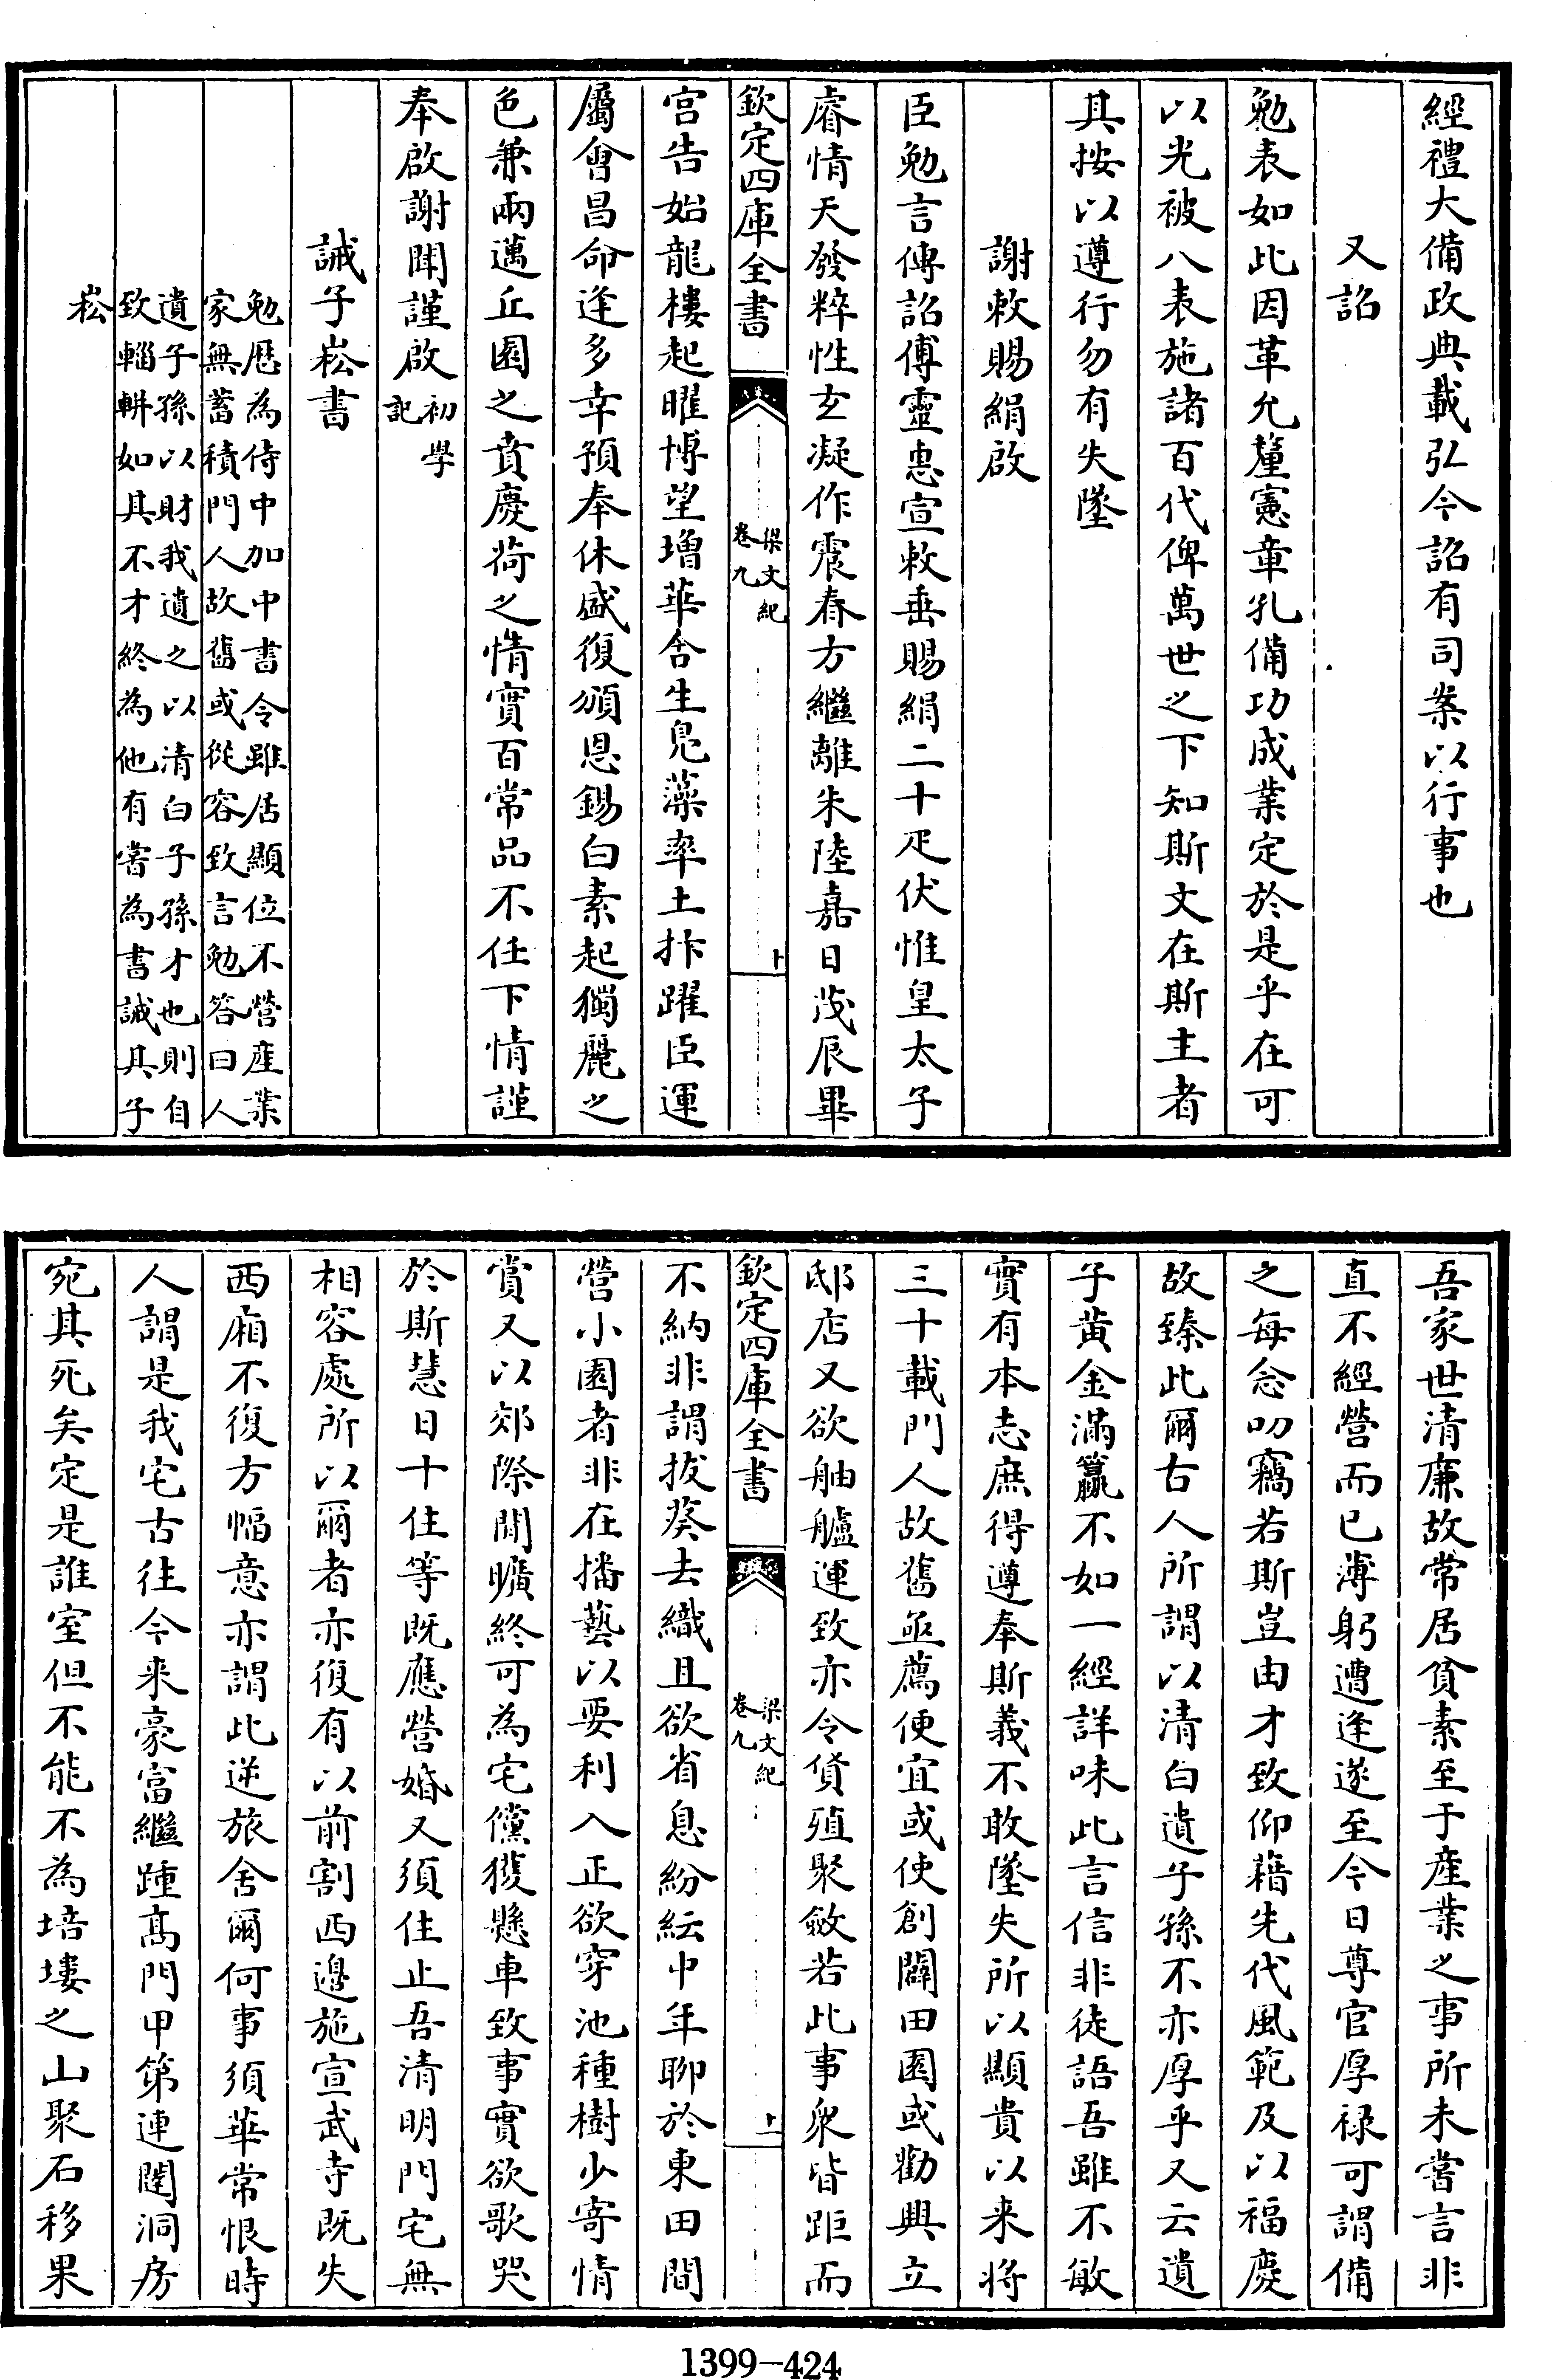 經禮大備政典載弘今詔有司案以行事也
又詔
勉表如此因革允釐憲章孔備功成業定於是乎在可
以光被八表施諸百代俾萬世之下知斯文在斯主者
其按以遵行勿有失墜
謝敕賜絹啟
臣勉言傳詔傅靈惠宣敕垂賜絹二十疋伏惟皇太子
睿情天發粹性玄凝作震春方繼離朱陸嘉日茂辰畢
欽定四庫全書
梁文紀
卷九
十
宫告始龍樓起曜博望增華含生鳧藻率土抃躍臣運
屬會昌命逢多幸預奉休盛復頒恩錫白素起獨麗之
色兼兩邁丘園之賁慶荷之情實百常品不任下情謹
奉啟謝聞謹啟初學
記
誡子崧書
勉歴為侍中加中書令雖居顯位不營產業
家無蓄積門人故舊或從容致言勉答曰人
遺子孫以財我遺之以清白子孫才也則自
致輜軿如其不才終為他有嘗為書誡其子
崧
吾家世清廉故常居貧素至于産業之事所未嘗言非
直不經營而已薄躬遭逢遂至今日尊官厚禄可謂備
之每念叨竊若斯豈由才致仰藉先代風範及以福慶
故臻此爾古人所謂以清白遺子孫不亦厚乎又云遺
子黄金滿籯不如一經詳味此言信非徒語吾雖不敏
實有本志庶得遵奉斯義不敢墜失所以顯貴以來將
三十載門人故舊亟薦便宜或使創闢田園或勸興立
邸店又欲舳艫運致亦令貨殖聚斂若此事衆皆距而
欽定四庫全書
梁文紀
卷九
十一
不納非謂拔葵去織且欲省息紛紜中年聊於東田間
營小園者非在播藝以要利入正欲穿池種樹少寄情
賞又以郊際閒曠終可為宅儻獲懸車致事實欲歌哭
於斯慧日十住等既應營婚又須住止吾清明門宅無
相容處所以爾者亦復有以前割西邊施宣武寺既失
西廂不復方幅意亦謂此逆旅舍爾何事須華常恨時
人謂是我宅古往今來豪富繼踵高門甲第連闥洞房
宛其死矣定是誰室但不能不為培塿之山聚石移果
1399—424